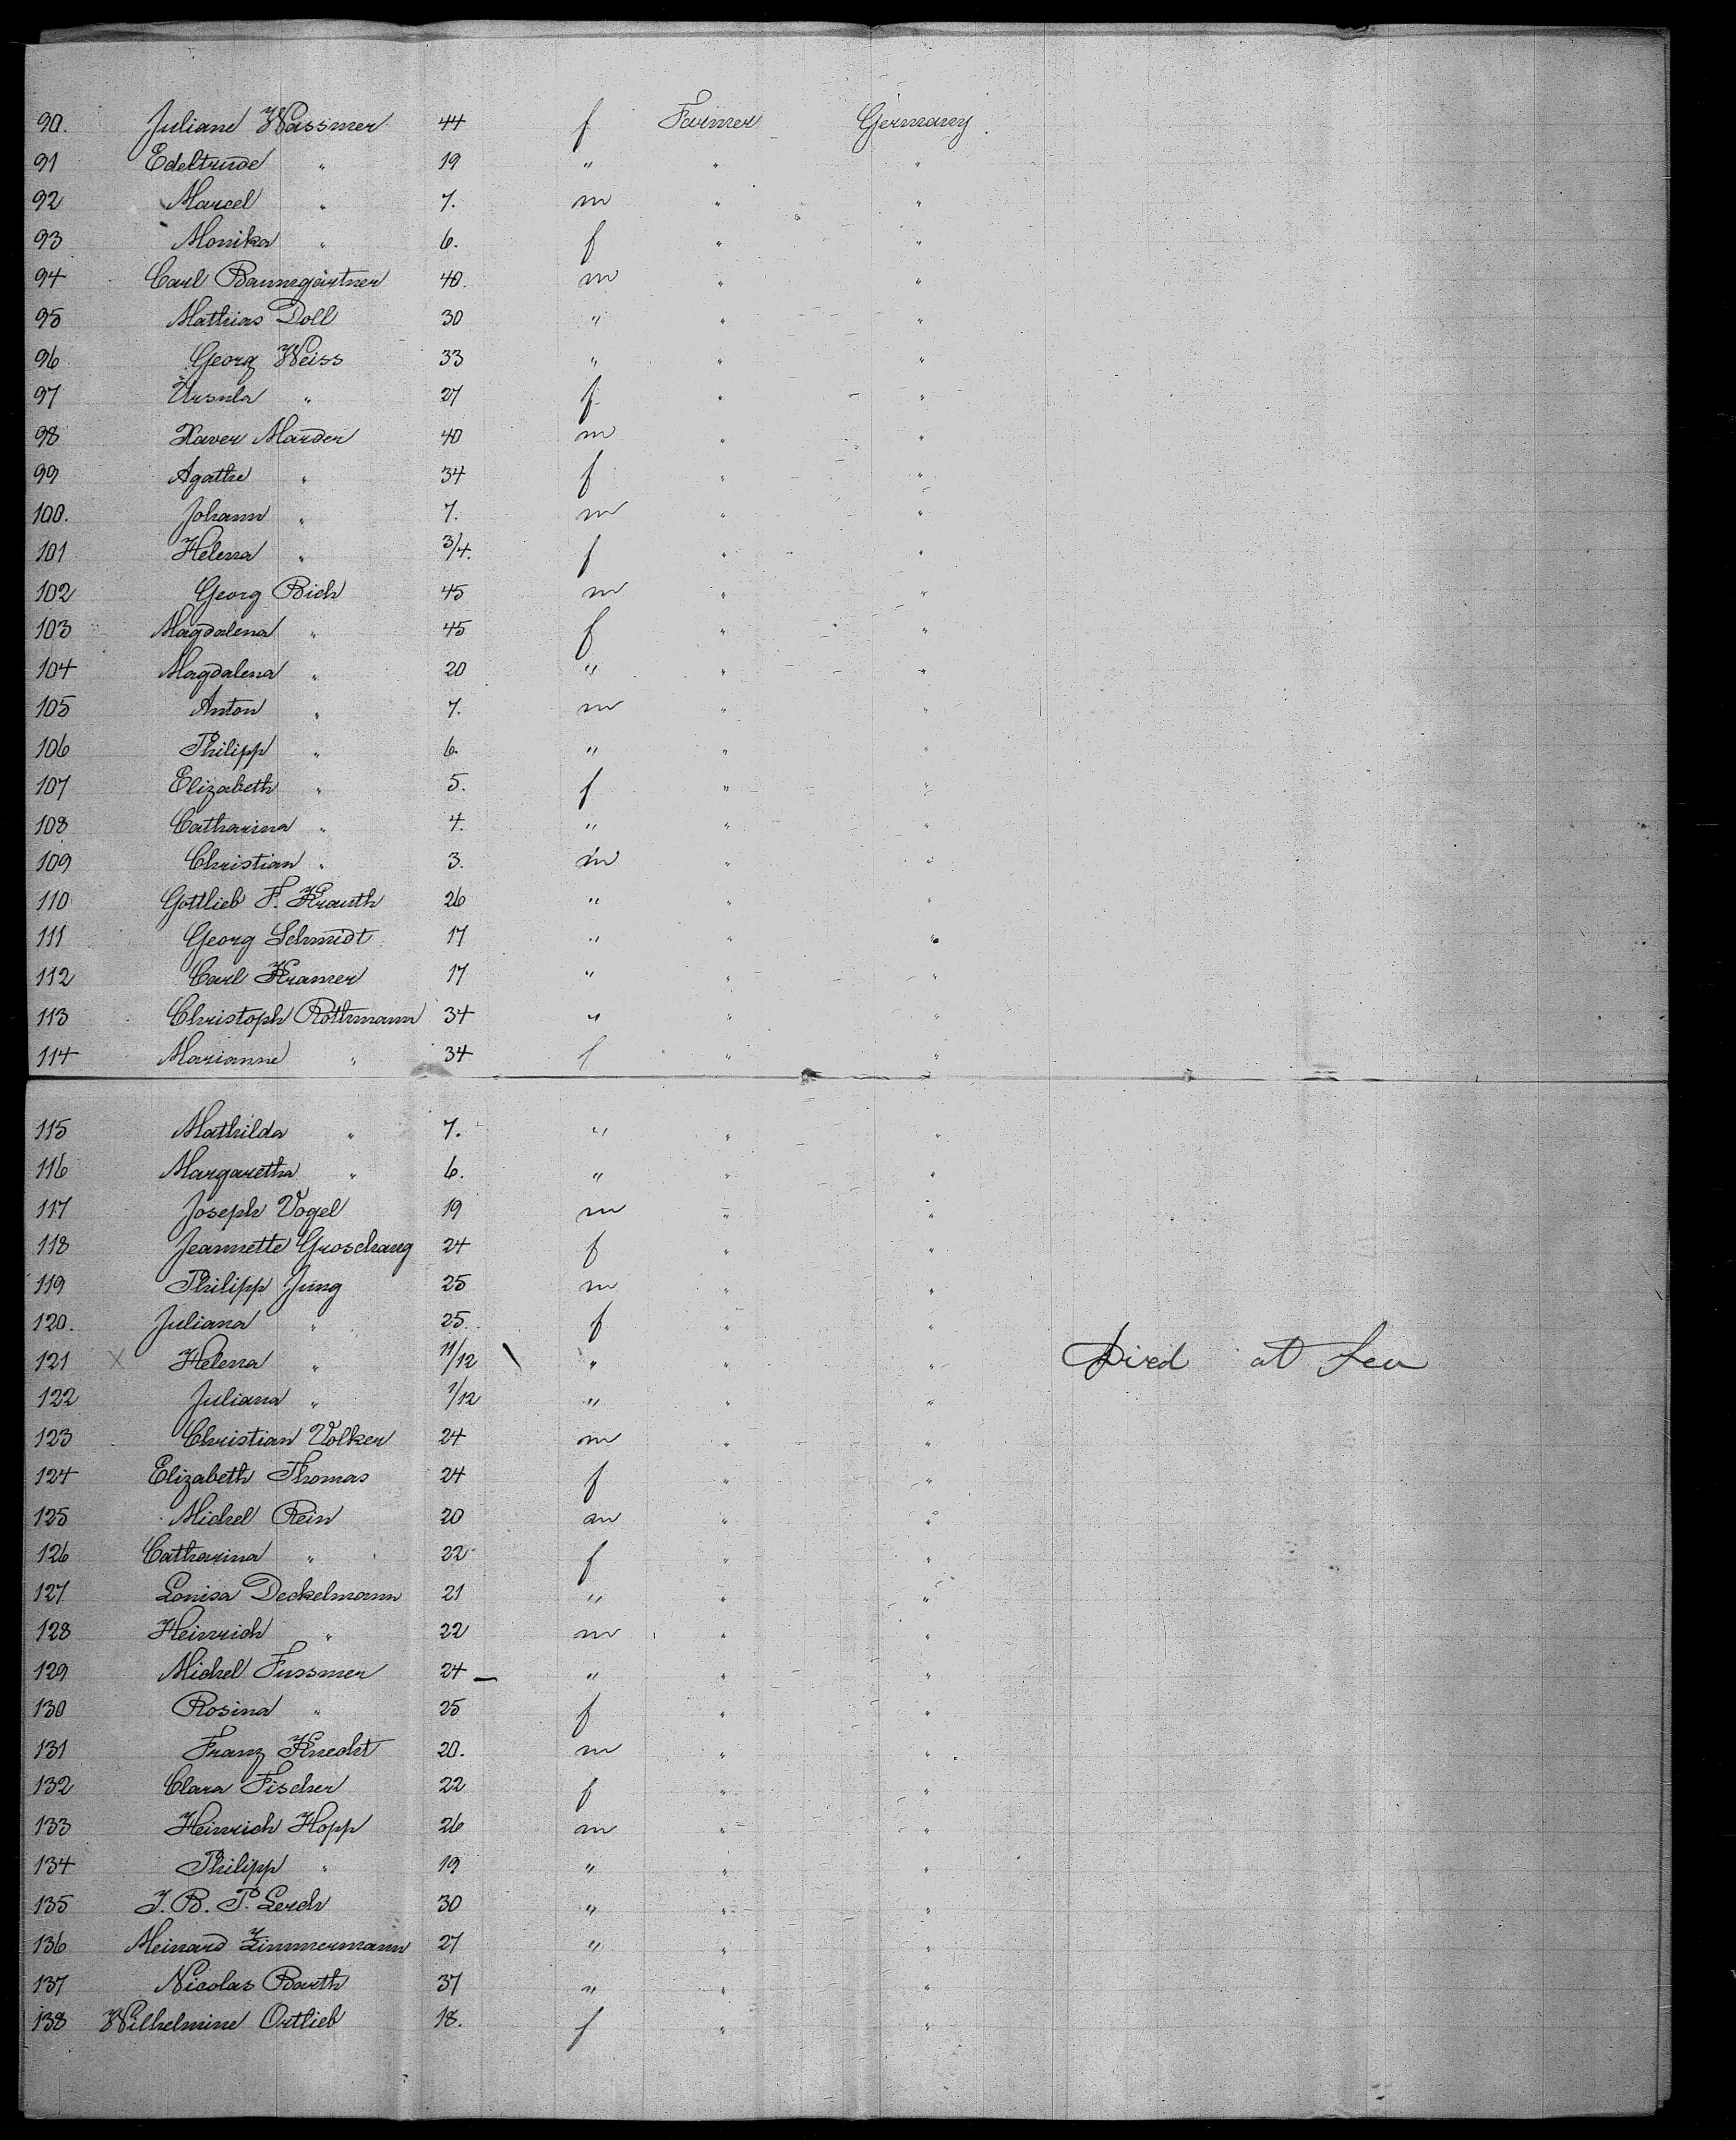 90. Juliane Wassmer 44 f Farmer Germany.
91 Edeltrude " 19 " " "
92 Marcel " 7. m " "
93 Monika " 6. f " "
94 Carl Baumgärtner 40. m " "
95 Mathias Doll 30 " " "
96 Georg Weiss 33 " " "
97 Ursula " 27 f " "
98 Xaver Marder 40 m " "
99 Agathe " 34 f " "
100. Johann " 7. m " "
101 Helena " 3/4. f " "
102 Georg Bich 45 m " "
103 Magdalena " 45 f " "
104 Magdalena " 20 " " "
105 Anton " 7. m " "
106 Philipp " 6. " " "
107 Elizabeth " 5. f " "
108 Catharina " 4. " " "
109 Christian " 3. m " "
110 Gottlieb F. Krauth 26 " " "
111 Georg Schmidt 17 " " "
112 Carl Kramer 17 " " "
113 Christoph Rothmann 34 " " "
114 Marianne " 34 f " "
115 Mathilda " 7. " " "
116 Margaretha " 6. " " "
117 Joseph Vogel 19 m " "
118 Jeannette Groschang 24 f " "
119 Philipp Jung 25 m " "
120. Juliana " 25. f " "
121 X Helena " 11/12 \ " " " Died at Sea
122 Juliana " 1/12 " " "
123 Christian Volker 24 m " "
124 Elizabeth Thomas 24 f " "
125 Michel Rein 20 m " "
126 Catharina " 22 f " "
127 Louisa Deckelmann 21 " " "
128 Heinrich " 22 m " "
129 Michel Fussmer 24 " " "
130 Rosina " 25 f " "
131 Franz Knecht 20. m " "
132 Clara Fischer 22 f " "
133 Heinrich Hopp 26 m " "
134 Philipp " 19 " " "
135 J. B. P. Lerch 30 " " "
136 Meinard Zimmermann 27 " " "
137 Nicolas Barth 37 " " "
138 Wilhelmine Ortlieb 18. f " "